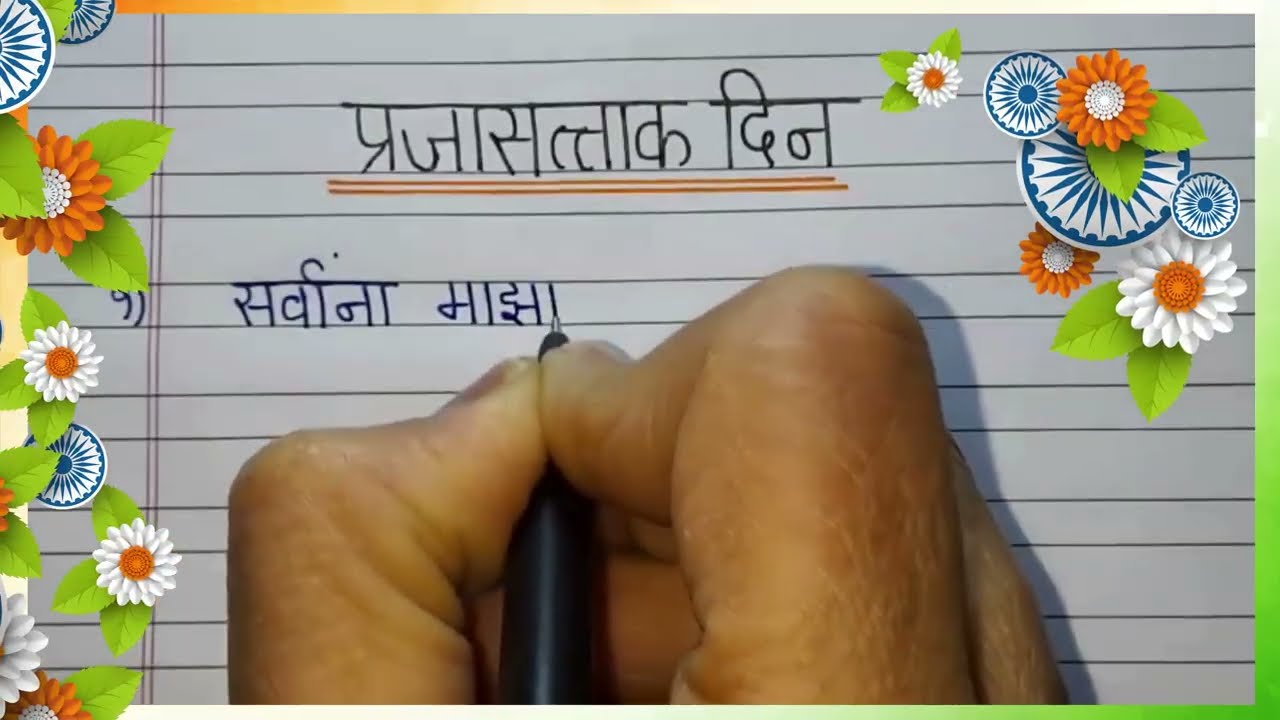 प्रजासत्ताक दिन
१) सर्वांना माझा